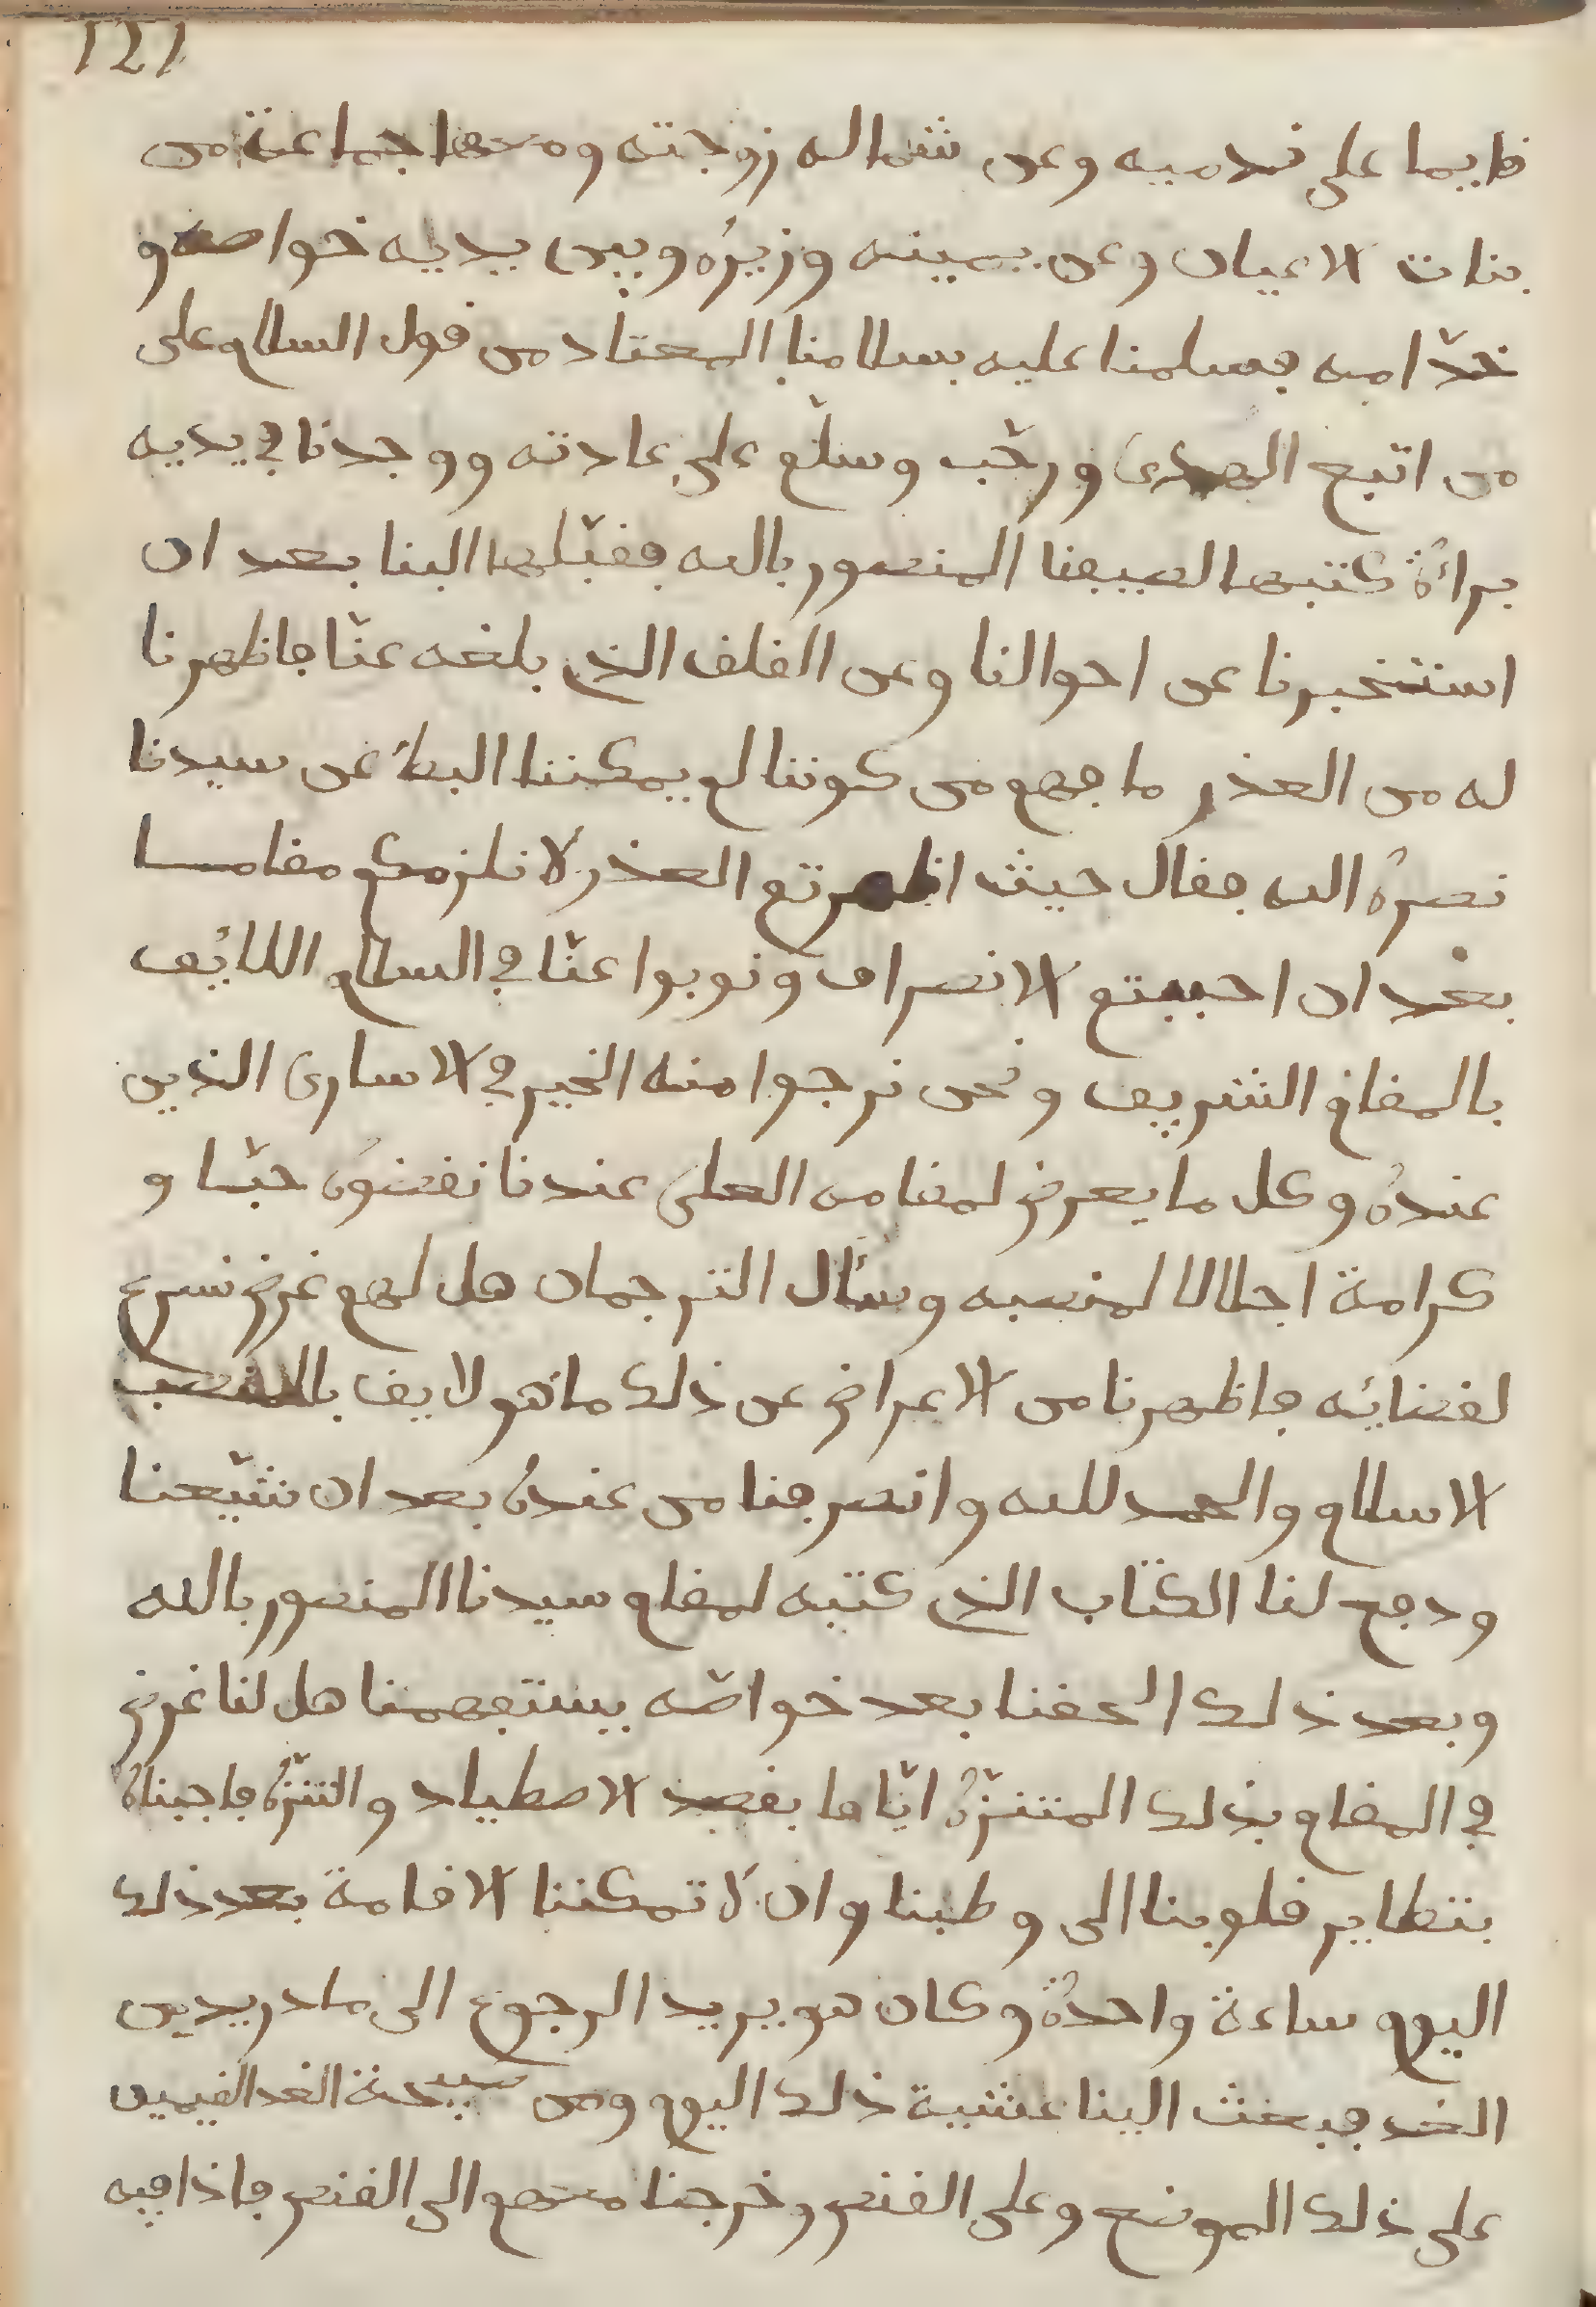 121
قايما على قدميه وعن شماله زوجته ومعها جماعة من
بنات الاعيان وعن يمينه وزيره وبين يديه خواصه و
خدّامه فسلمنا عليه بسلامنا المعتاد من قول السلام على
من اتبع الهدى ورحّب وسلّم على عادته ووجدنا في يديه
براءة كتبها لضيفنا المنصور بالله فقبّلها البنا بعد ان
استخبرنا عن احوالنا وعن القلق الذي بلغه عنّا فاظهرنا
له من العذر ما فهم من كوننا لم يمكننا البطء عن سيدنا
نصره الله فقال حيث اظهرتم العذر لا نلزمكم مقاما
بغد ان احببتم الانصراف ونوبوا عنّا في السلام اللائق
بالمقام الشريف ونحن نرجوا منه الخير في الاسارى الذين
عنده وكل ما يعرض لمقامه العلي عندنا نقضوه حبّا و
كرامة اجلالا لمنصبه وسأل الترجمان هل لهم غرض نسرع
لقضائه فاظهرنا من الاعراض عن ذلك ما هو لايق بالمنصب
الاسلام والحمد لله وانصرفنا من عنده بعد ان شيّعنا
ودفع لنا الكتاب الذي كتبه لمقام سيدنا المنصور بالله
وبعد ذلك الحقنا بعد خواصّه يستفهمنا هل لنا غرض
في المقام بذلك المتنزّه ايّاما بقصد الاصطياد والتنزّه فاجبناه
بتطاير قلوبنا الى وطننا وان لا تمكننا الاقامة بعد ذلك
اليوم ساعة واحدة وكان هو يريد الرجوع الى مادريد من
الغد فبعث الينا عشية ذلك اليوم ومن صبيحة الغد القيمين
على ذلك الموضع وعلى القنص وخرجنا معهم الى القنص فاذا فيه